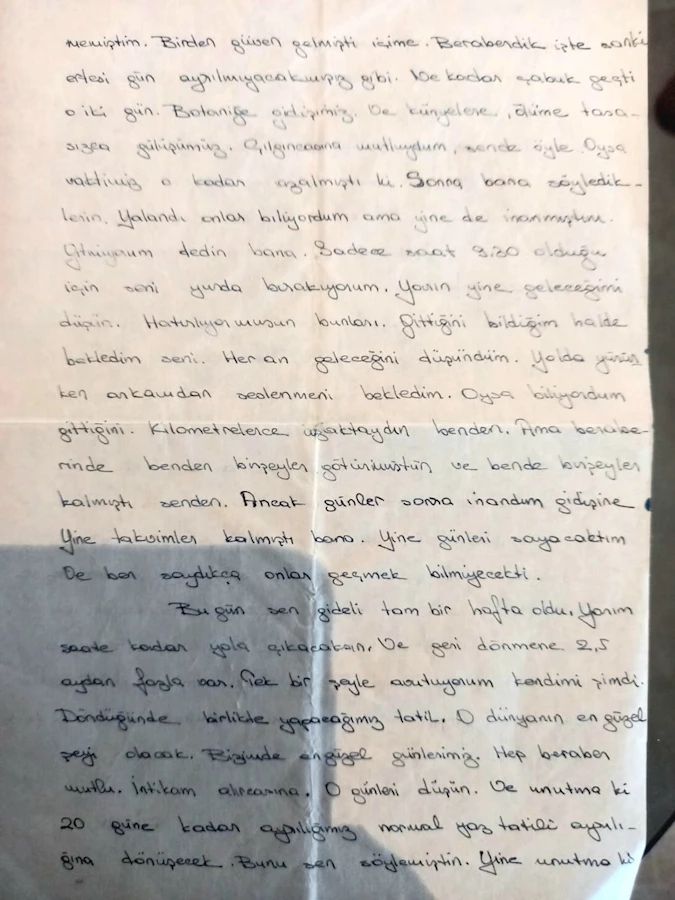 nemiştim. Birden güven gelmişti içime. Beraberdik işte sanki
ertesi gün ayrılmıyacakmışız gibi. Ne kadar çabuk geçti
o iki gün. Botaniğe gidişimiz. Ve künyelere, ölüme tasa-
sızca gülüşümüz. Çılgıncasına mutluydum, sende öyle. Oysa
vaktimiz o kadar azalmıştı ki. Sonra bana söyledik-
lerin. Yalandı onlar biliyordum ama yine de inanmıştım.
Gitmiyorum dedin bana. Sadece saat 9.20 olduğu
için seni yurda bırakıyorum. Yarın yine geleceğimi
düşün. Hatırlıyormusun bunları. Gittiğini bildiğim halde
bekledim seni. Her an geleceğini düşündüm. Yolda yürür
ken arkamdan seslenmeni bekledim. Oysa biliyordum
gittiğini. Kilometrelerce uzaktaydın benden. Ama berabe-
rinde benden birşeyler götürmüştün ve bende birşeyler
kalmıştı senden. Ancak günler sonra inandım gidişine
Yine takvimler kalmıştı bana. Yine günleri sayacaktım
Ve ben saydıkça onlar geçmek bilmiyecekti.
Bu gün sen gideli tam bir hafta oldu. Yarım
saate kadar yola çıkacaksın. Ve geri dönmene 2,5
aydan fazla var. Tek bir şeyle avutuyorum kendimi şimdi.
Döndüğünde birlikte yapacağımız tatil. O dünyanın en güzel
şeyi olacak. Bizimde en güzel günlerimiz. Hep beraber
mutlu. İntikam alırcasına. O günleri düşün. Ve unutma ki
20 güne kadar ayrılığımız normal yaz tatili ayrılı-
ğına dönüşecek. Bunu sen söylemiştin. Yine unutma ki